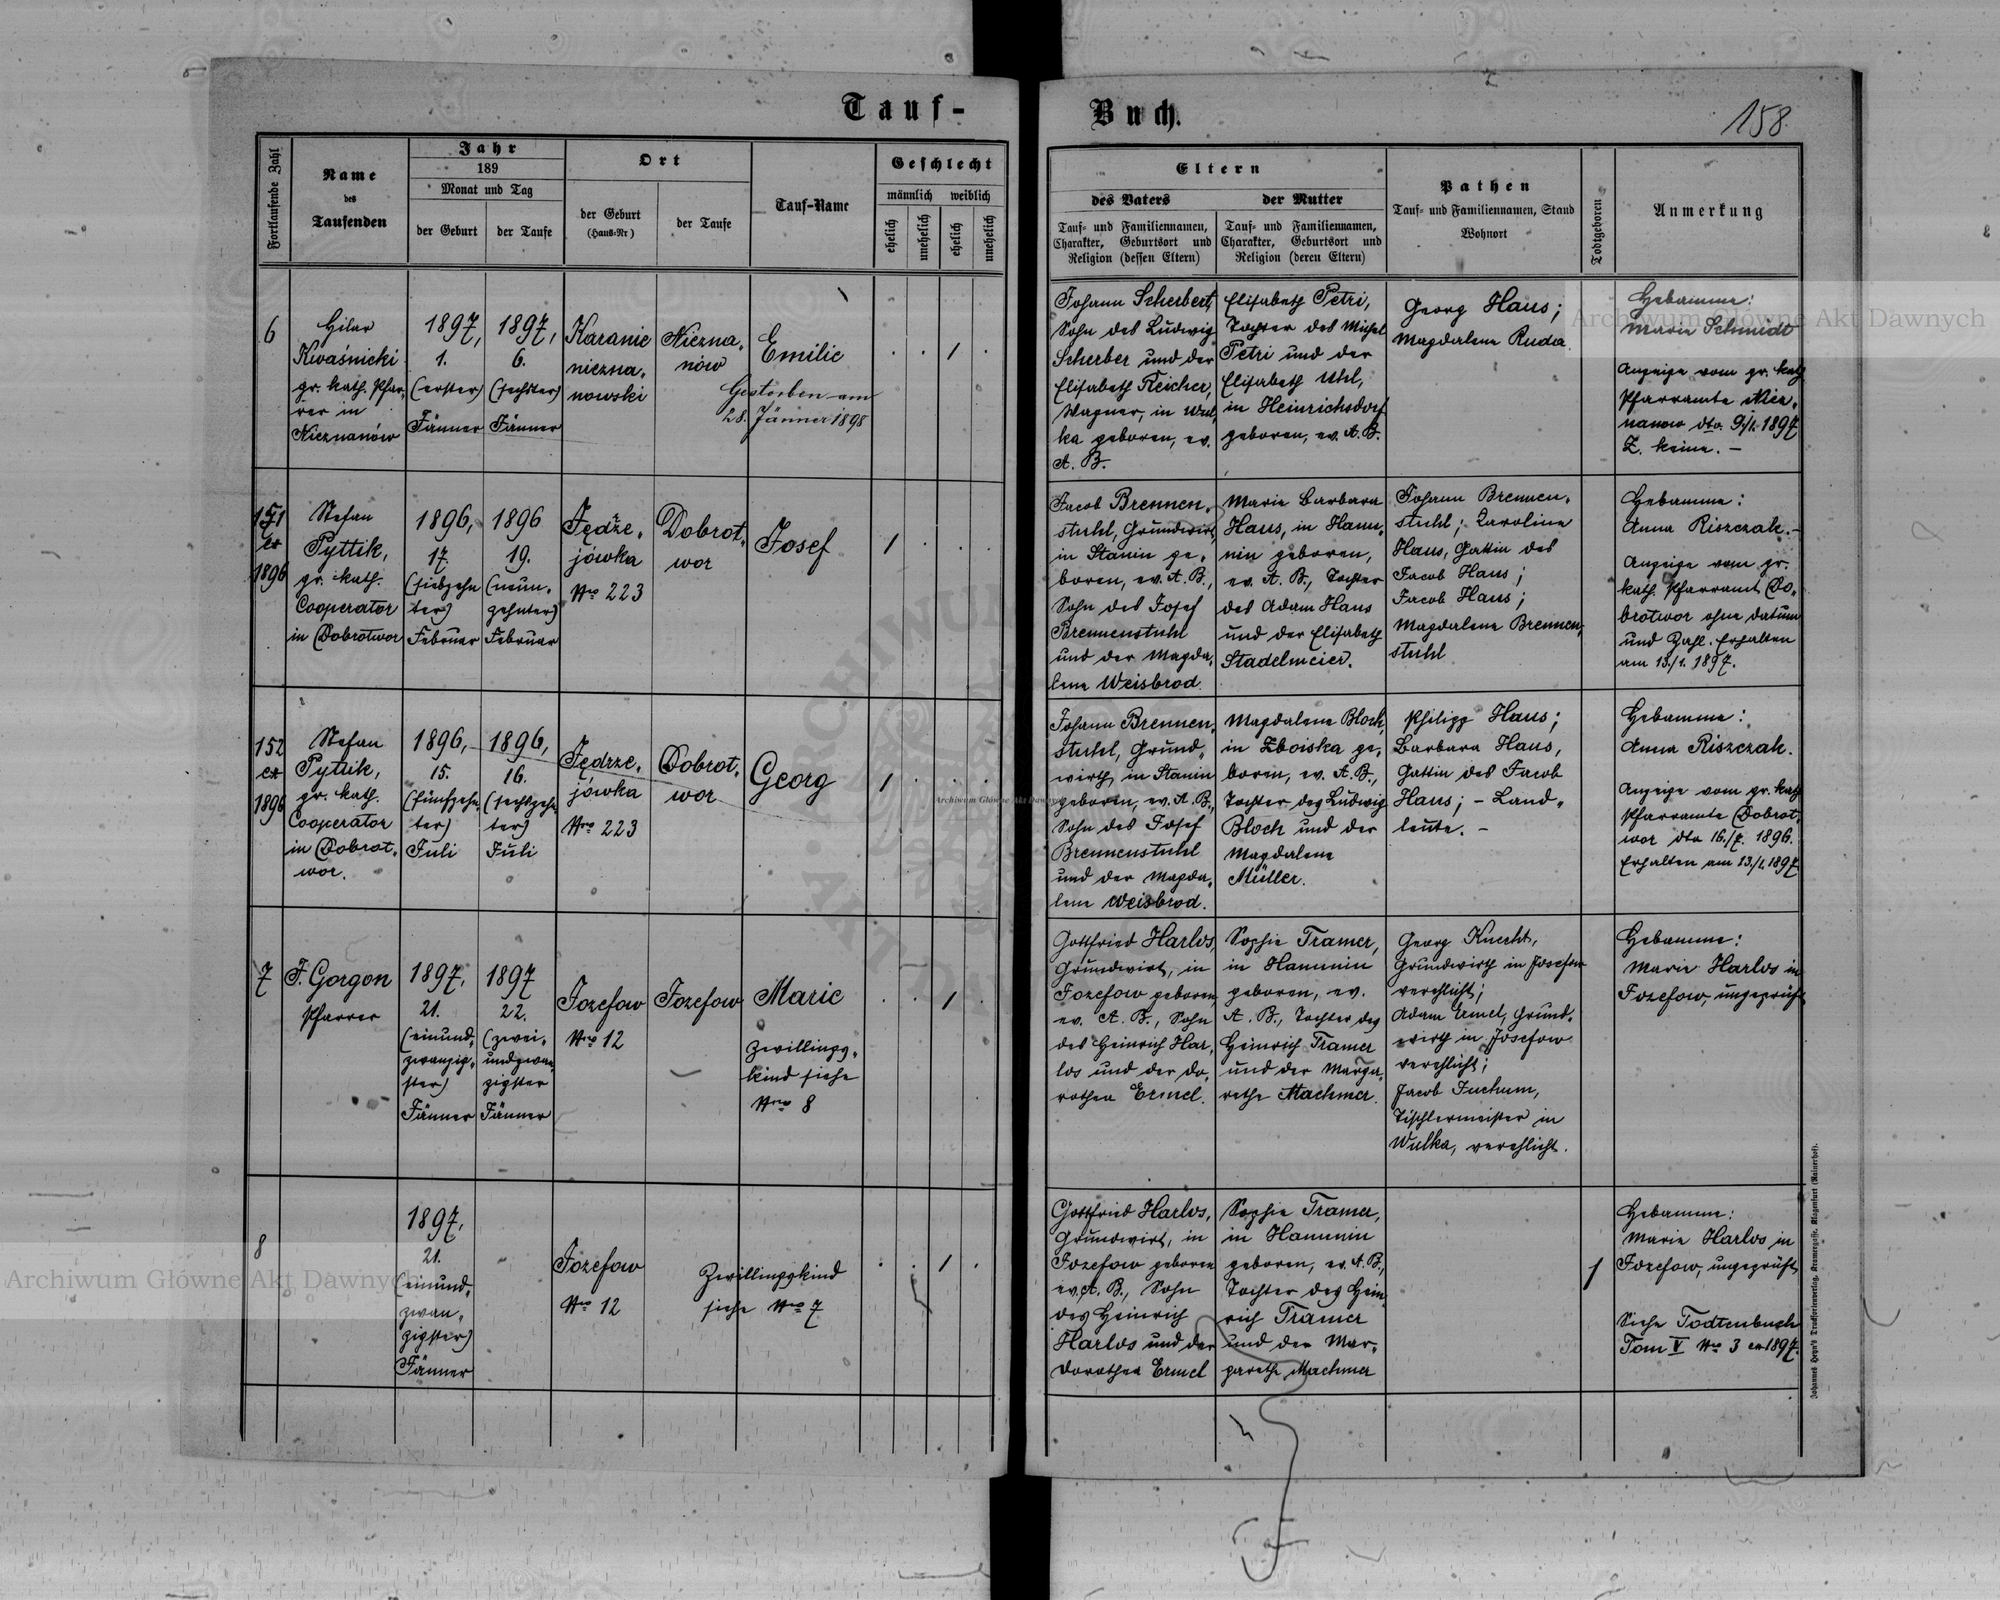 Tauf-
Buch.
158.
Fortlaufende Zahl
Name
des
Taufenden
Jahr
189
Monat und Tag
der Geburt
der Taufe
Ort
der Geburt
(Haus-Nr)
der Taufe
Tauf-Name
Geschlecht
männlich
weiblich
ehelich
unehelich
ehelich
unehelich
Eltern
des Vaters
Tauf- und Familiennamen,
Charakter, Geburtsort und
Religion (dessen Eltern)
der Mutter
Tauf- und Familiennamen,
Charakter, Geburtsort und
Religion (deren Eltern)
Pathen
Tauf- und Familiennamen, Stand
Wohnort
Todtgeboren
Anmerkung
6
Hilar
Kwaśnicki
gr. kath. Pfar-
rer in
Nieznanów
1897,
1.
(erster)
Jänner
1897,
6.
(sechster)
Jänner
Karanie
niezna-
nowski
Niezna-
nów
Emilie
Gestorben am
28. Jänner 1898
. . 1 .
Johann Scherbert,
Sohn des Ludwig
Scherber und der
Elisabeth Reicher,
Wagner, in Wul-
ka geboren, ev.
A. B.
Elisabeth Petri,
Tochter des Michel
Petri und der
Elisabeth Uhl,
in Heinrichsdorf
geboren, ev. A. B.
Georg Haus;
Magdalena Ruda.
Hebamme:
Marie Schmidt
Anzeige vom gr. kath
Pfarramte Niez-
nanow dto. 9./1. 1897
Z. keine. –
151
ex
1896
Stefan
Pyttik,
gr. kath.
Cooperator
in Dobrotwor
1896,
17.
(siebzehn
ter)
Februar
1896
19.
(neun-
zehnter)
Februar
Jędrze-
jówka
Nro 223
Dobrot-
wor
Josef
1 . . .
Jacob Brennen-
stuhl, Grundwirt,
in Stanin ge-
boren, ev. A. B.,
Sohn des Josef
Brennenstuhl
und der Magda-
lena Weisbrod.
Marie Barbara
Haus, in Hanu-
nin geboren,
ev. A. B., Tochter
des Adam Haus
und der Elisabeth
Stadelmeier.
Johann Brennen-
stuhl; Karoline
Haus, Gattin des
Jacob Haus;
Jacob Haus;
Magdalena Brennen-
stuhl
Hebamme:
Anna Riszczak. –
Anzeige vom gr.
kath. Pfarramt Do-
brotwor ohne Datum
und Zahl. Erhalten
am 13./1. 1897.
152
ex
1896
Stefan
Pyttik,
gr. kath.
Cooperator
in Dobrot-
wor.
1896,
15.
(fünfzehn-
ter)
Juli
1896,
16.
(sechszehn-
ter)
Juli
Jędrze-
jówka
Nro 223
Dobrot-
wor
Georg
1 . . .
Johann Brennen-
stuhl, Grund-
wirth, in Stanin
geboren, ev. A. B.,
Sohn des Josef
Brennenstuhl
und der Magda-
lena Weisbrod.
Magdalena Bloch,
in Zboiska ge-
boren, ev. A. B.,
Tochter des Ludwig
Bloch und der
Magdalena
Müller.
Philipp Haus;
Barbara Haus,
Gattin des Jacob
Haus; – Land-
leute. –
Hebamme:
Anna Riszczak.
Anzeige vom gr. kath
Pfarramte Dobrot-
wor dto 16./7. 1896.
Erhalten am 13./1. 1897.
7
F. Gorgon
Pfarrer
1897,
21.
(einund-
zwanzig-
ster)
Jänner
1897
22.
(zwei-
undzwan-
zigster
Jänner
Jozefow
Nro 12
Jozefow
Marie
Zwillings-
kind siehe
Nro 8
. . 1 .
Gottfried Harlos,
Grundwirt, in
Jozefow geboren
ev. A. B., Sohn
des Heinrich Har-
los und der Do-
rothea Ermel.
Sophie Tramer,
in Hanunin
geboren, ev.
A. B., Tochter des
Heinrich Tramer
und der Marga-
rethe Machmer.
Georg Knecht,
Grundwirth in Josefow
verehlicht;
Adam Ermel, Grund-
wirth in Josefow
verehlicht;
Jacob Juchum,
Tischlermeister in
Wulka, verehlicht.
Hebamme:
Marie Harlos in
Jozefow, ungeprüft
8
1897,
21.
(einund-
zwan-
zigster)
Jänner
Jozefow
Nro 12
Zwillingskind
siehe Nro 7
. . 1 .
Gottfried Harlos,
Grundwirt, in
Jozefow geboren
ev. A. B., Sohn
des Heinrich
Harlos und der
Dorothea Ermel
Sophie Tramer,
in Hanunin
geboren, ev. A. B.,
Tochter des Hein-
rich Tramer
und der Mar-
garethe Machmer
1
Hebamme:
Marie Harlos in
Jozefow, ungeprüft
Siehe Todtenbuch
Tom V Nro 3 ex 1897.
Johannes Heyn's Drucksortenverlag, Kramergasse, Klagenfurt (Rainerhof).
Archiwum Główne Akt Dawnych
Archiwum Główne Akt Dawnych
Archiwum Główne Akt Dawnych